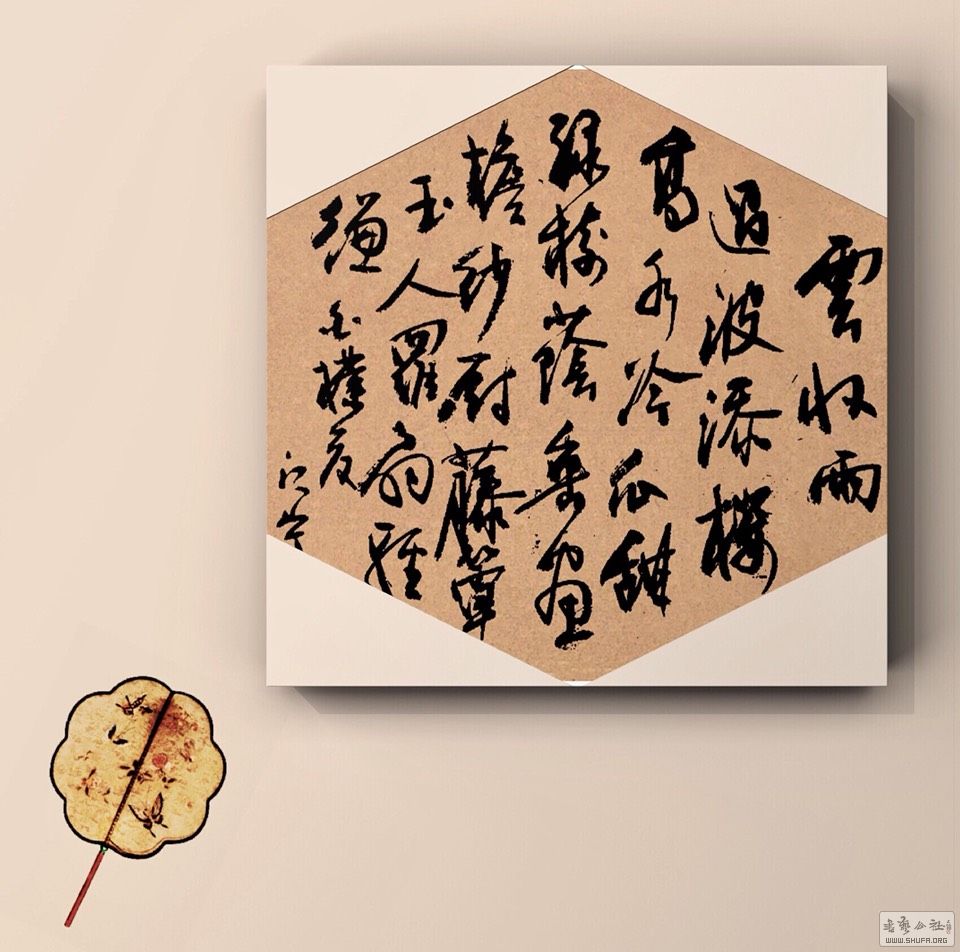 雲收雨
過波添樓
高水冷瓜甜
綠樹蔭垂畫
檐紗廚藤簟
玉人羅扇輕
縑 白樸《夏》
書藝公社
WWW.SHUFA.ORG